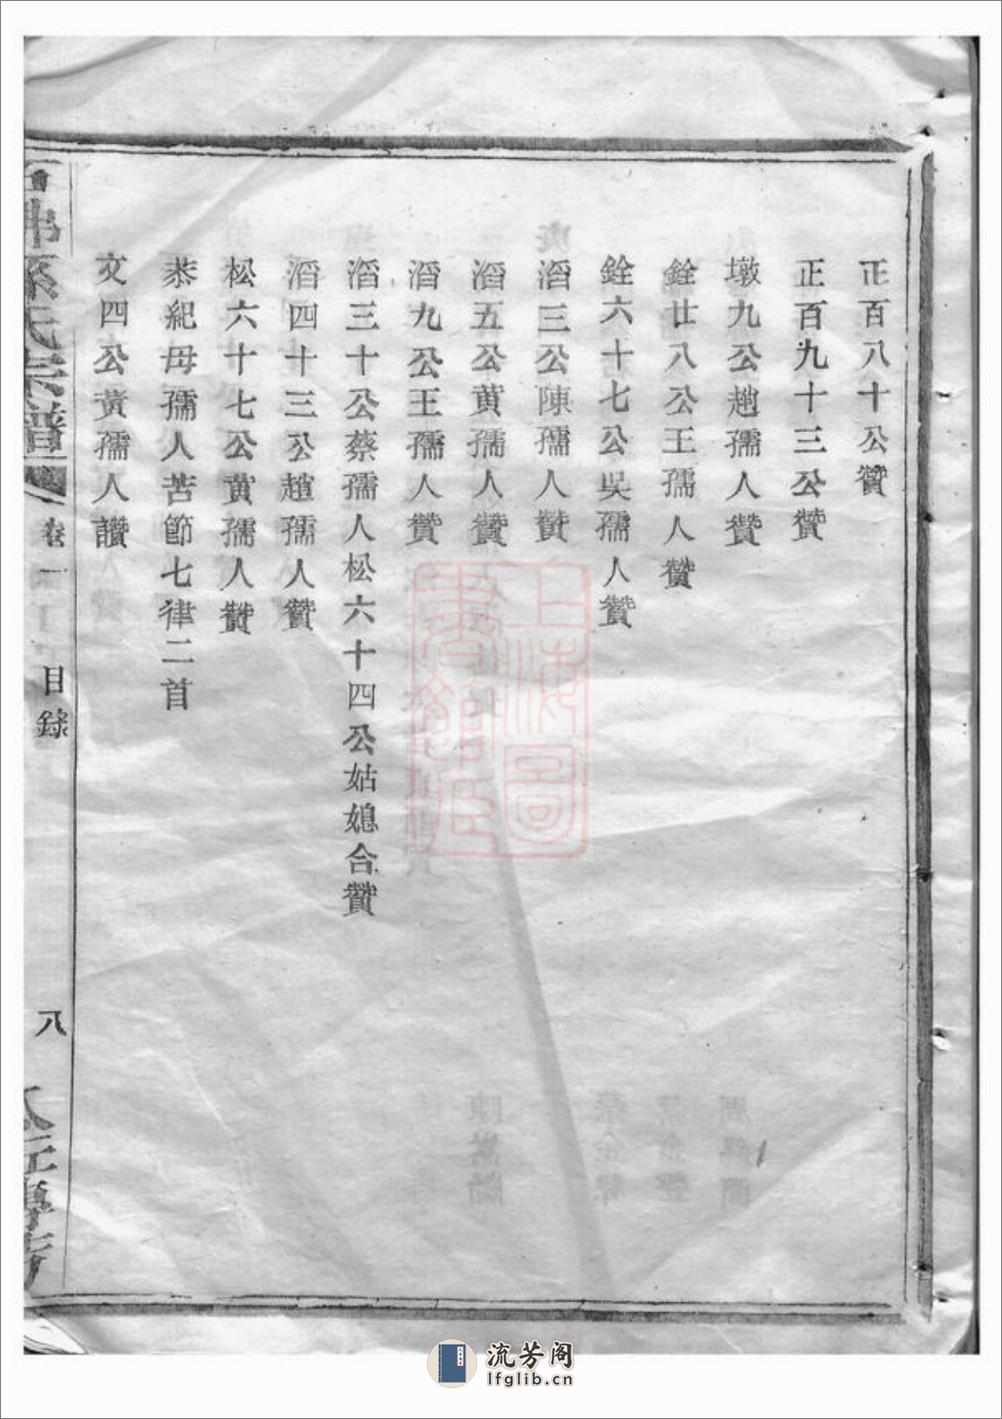 正百八十公贊
正百九十三公贊
墩九公趙孺人贊
銓廿八公王孺人贊
銓六十七公吳孺人贊
滔三公陳孺人贊
滔五公黄孺人贊
滔九公王孺人贊
滔三十公蔡孺人松六十四公姑媳合贊
滔四十三公趙孺人贊
松六十七公黄孺人贊
恭紀母孺人苦節七律二首
文四公黃孺人讚
氏宗譜
卷一
目錄
八
上海圖
書館藏
流芳阁
lfglib.cn